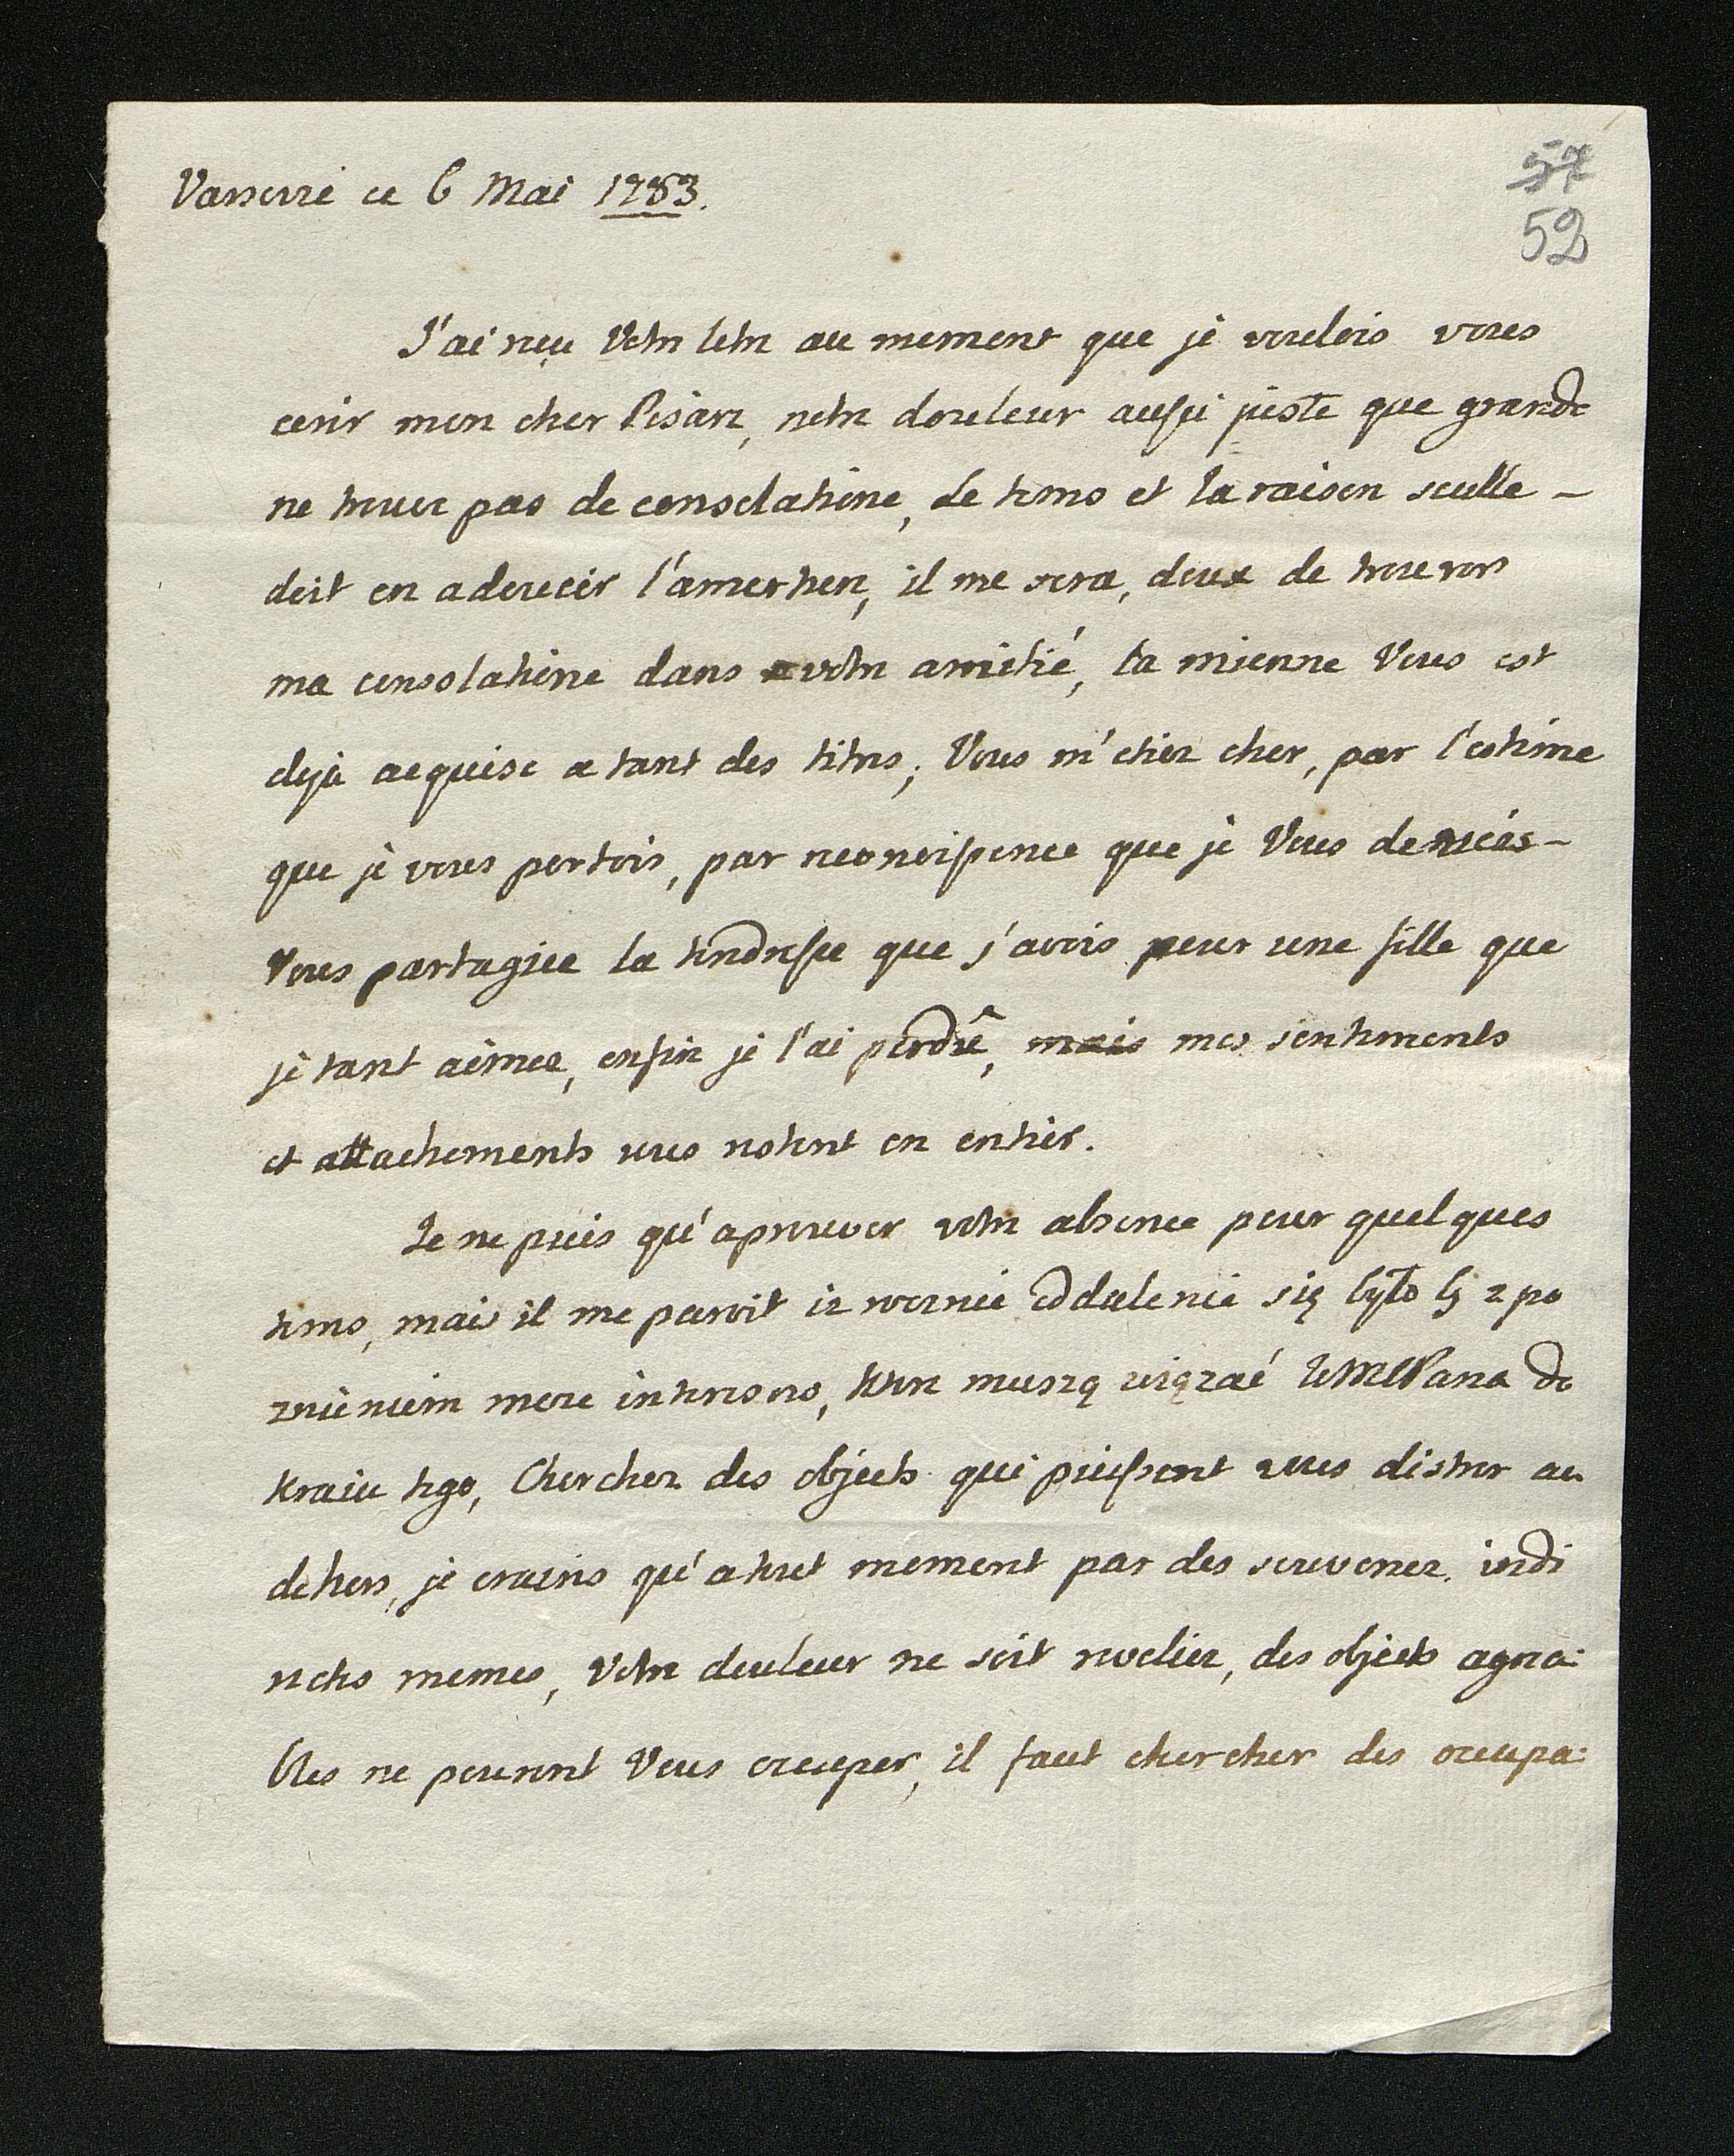 Varsovie ce 6 Mai 1783.
57
52
J'ai reçu Votre letre au moment que je voulois vous
ecrir mon cher Pisarz, notre douleur aussi juste que grande
ne trouve pas de consolatione, Le tems et la raison seulle -
doit en adoucir l'amertun, il me sera, doux de trouver
ma consolatione dans votre amitié, la mienne Vous est
deja acquise a tant des titres, Vous m'etiez cher, par l'estime
que je vous portois, par reconoissence que je Vous devois -
Vous partagiee la tendresse que j'avois pour une fille que
je tant aimee, enfin je l'ai perdûe, mais mes sentiments
et attachements vous restent en entier.
Je ne puis qu'aprouver votre absence pour quelques
tems, mais il me paroit iz oddalenie się było by z po
mere interesow, ktore muszą wiązać WMPana do
kraiu tego, Cherchez des objects qui puissent vous distrer au
dehors, je crains qu'a tout moment par des souvenez indi
rects memes, Votre douleur ne soit revelier, des objects agrea:
bles ne pouront Vous occuper, il faut chercher des occupa: